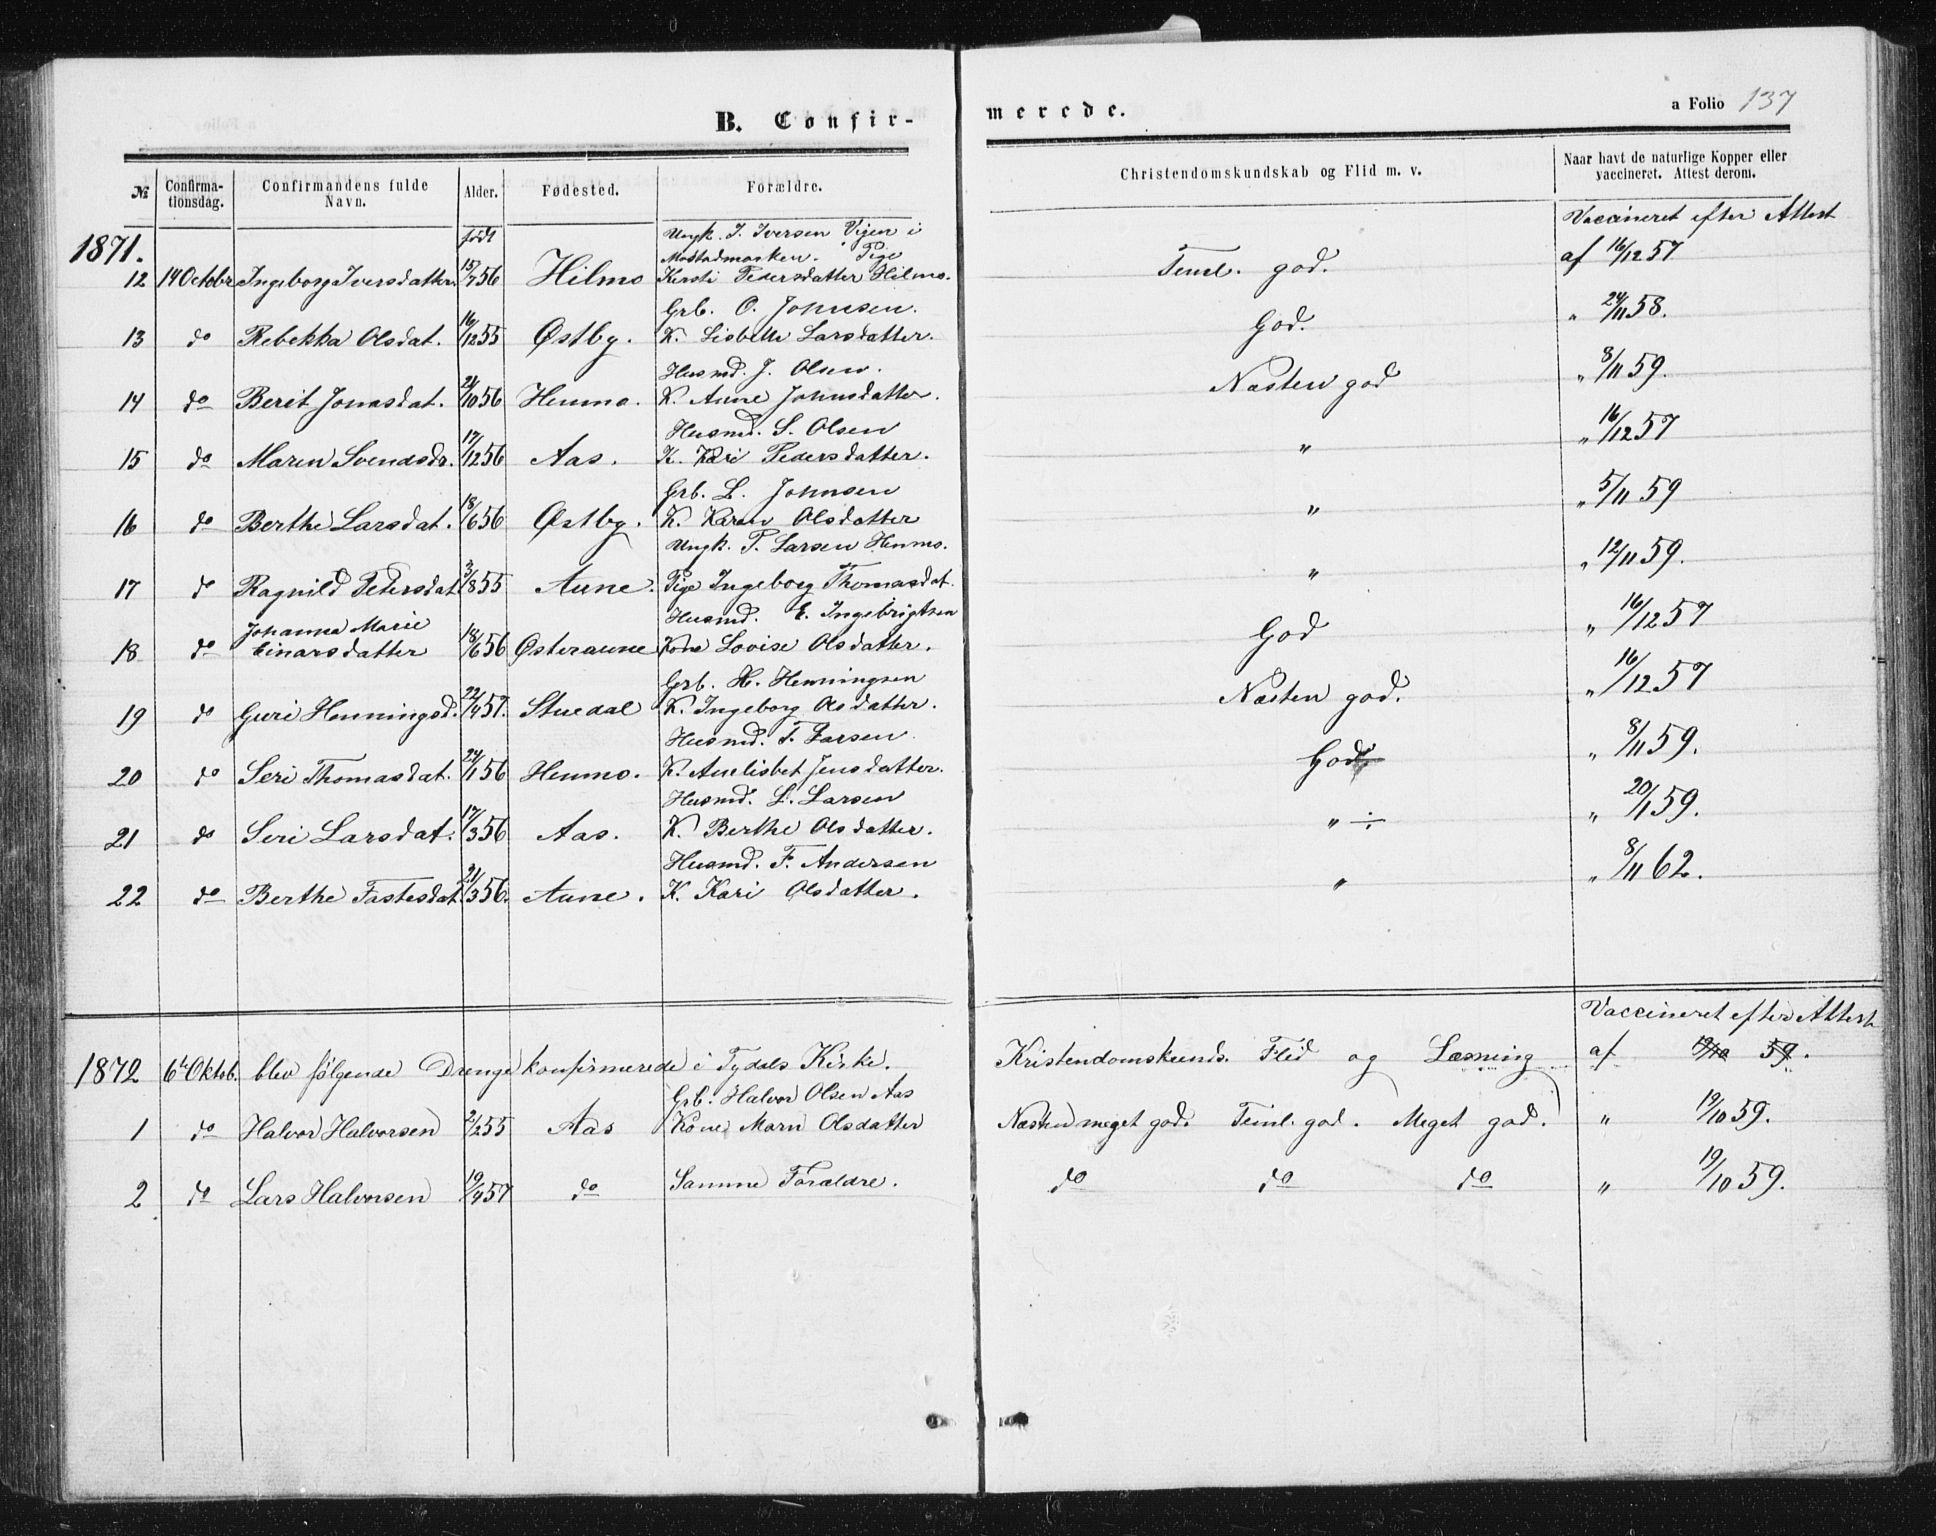 B. Confir-
merede.
a Folio 137
№ Confirma-tionsdag. Confirmandens fulde Navn. Alder. Fødested. Forældre. Christendomskundskab og Flid m. v. Naar havt de naturlige Kopper eller vaccineret. Attest derom.
1871. født Ungk. I. Iversen Vijen i Vaccineret efter Attest
Mostadmarken. Pige
12 14 Octobr Ingeborg Iversdatter 15/7 56 Hilmo Kersti Pedersdatter Hilmo. Teml. god. af 16/12 57
Grb. O. Johnsen.
13 do Rebekka Olsdat. 16/12 55 Østby. K. Lisbeth Larsdatter. God. " 24/11 58.
Husmd. J. Olsen.
14 do Berit Jonasdat. 24/10 56 Henmo. K. Anne Johnsdatter. Næsten god " 8/11 59.
Husmd. S. Olsen
15 do Maren Svendsdr. 17/12 56 Aas. K. Kari Pedersdatter. " " 16/12 57
Grb. L. Johnsen
16 do Berthe Larsdat. 18/6 56 Østby. K. Karen Olsdatter " " 5/11 59
Ungk. P. Larsen Henmo.
17 do Ragnild Petersdat 3/8 55 Aune. Pige Ingeborg Thomasdat. " " 12/11 59.
Johanna Marie Husmd. E. Ingebrigtsen
18 do Einarsdatter 18/6 56 Østeraune Kone Lovise Olsdatter. God " 16/12 57
Grb. H. Henningsen
19 do Guri Henningsd. 22/4 57. Stuedal K. Ingeborg Olsdatter. Næsten god. " 16/12 57
Husmd. T. Larsen
20 do Seri Thomasdat. 24/1 56 Henmo. K. Anelisbet Jensdatter. God " 8/11 59.
Husmd. L. Larsen
21 do Seri Larsdat. 17/3 56 Aas. K. Berthe Olsdatter. " ÷ " 20/1 59.
Husmd. F. Andersen
22 do Berthe Fastesdat. 21/3 56. Aune. K. Kari Olsdatter. " " 8/11 62.
Vaccineret efter Attest
1872 6te Oktob. blev følgende Drenge konfirmerede i Tydals Kirke. Kristendomskunds. Flid og Læsning af 19/10 59.
Grb. Halvor Olsen Aas
1 do Halvor Halvorsen 2/2 55 Aas Kone Marn Olsdatter Næsten meget god. Teml. god. Meget god. " 19/10 59.
2 do Lars Halvorsen 19/4 57 do Samme Forældre. do do do " 19/10 59.